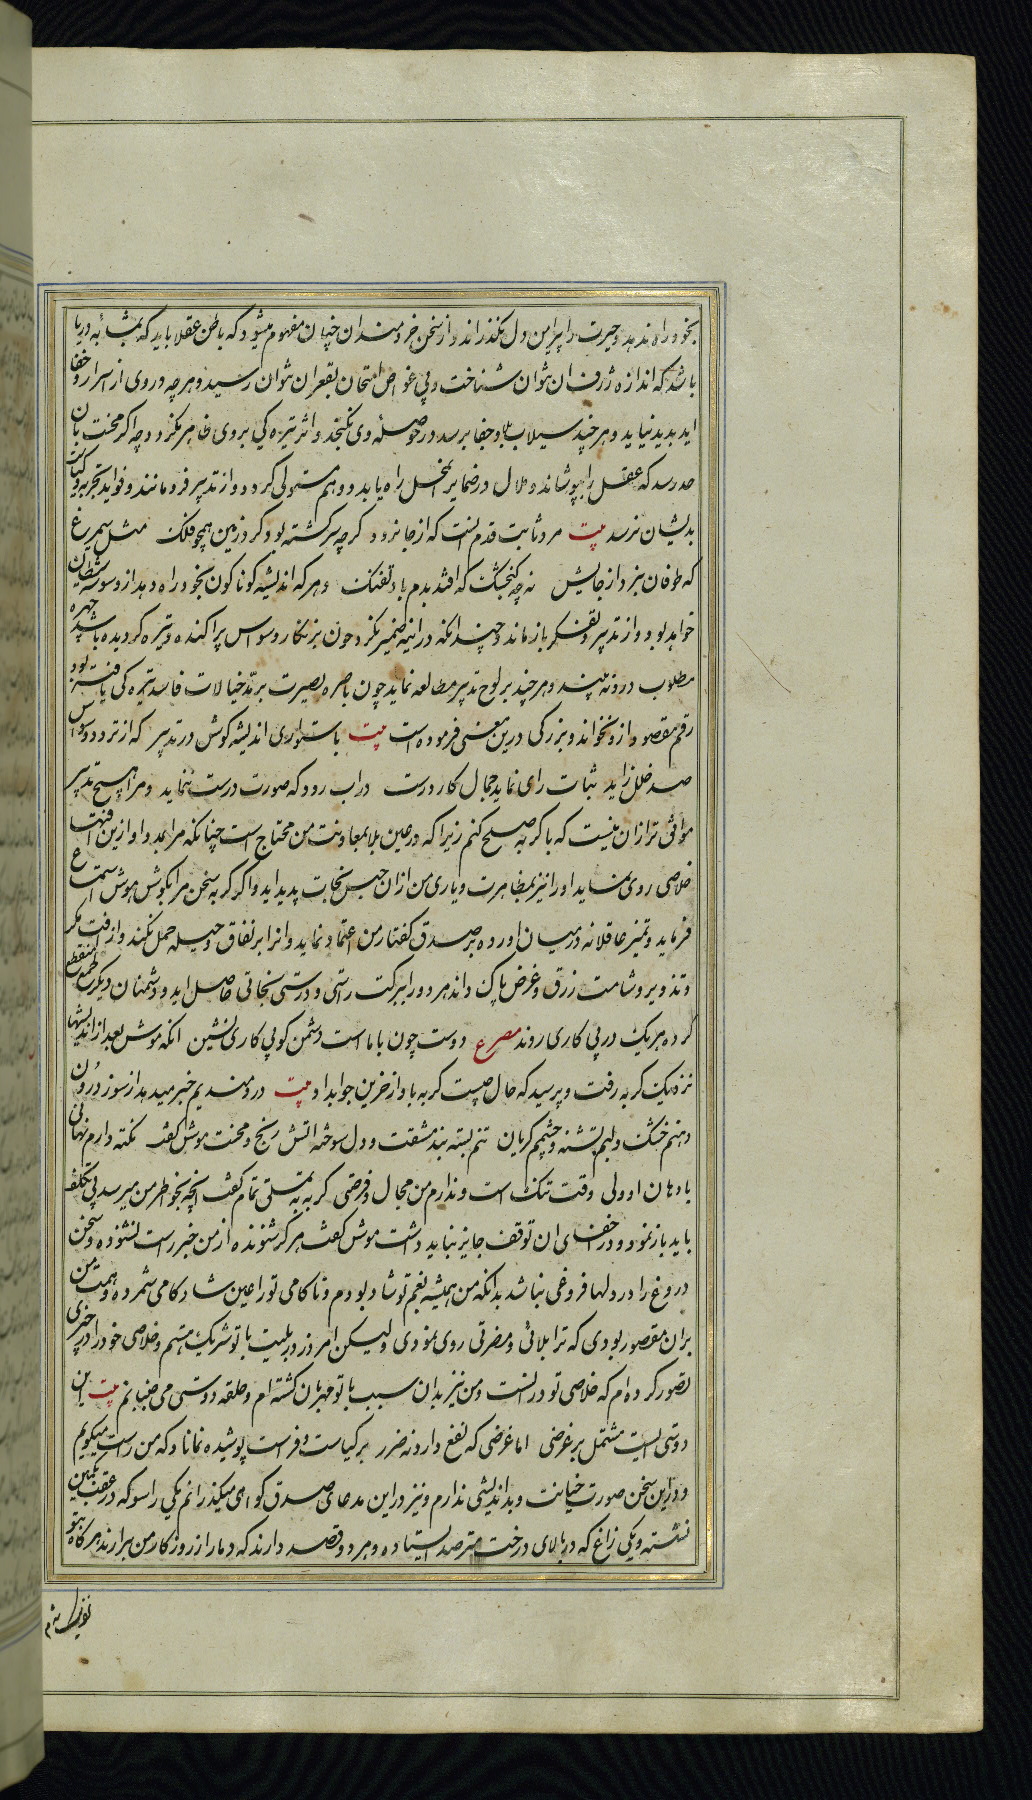 بخود راه ندهد و حیرت را پیرامن دل نگذراند و از سخن خردمندان چنان مفهوم میشود که باطن عقلا باید که بمثابه دریا
باشد که اندازه ژرف آن نتوان شناخت و بی غواص امتحان بقعر آن نتوان رسید و هرچه در وی از اسرار و خفا
اید پدید نیاید و هرچند سیلاب بلا و جفا برسد در حوصله وی بگنجد و اثر تیره کی بروی ظاهر نکردد و چه اگر محنت بان
حد رسد که عقل را بپوشاند و ملال در ضمایر محل راه یابد و وهم مستولی کردد و از تدبیر فرو مانند و فواید تجربه و کیاست
بدیشان نرسد بیت مرد ثابت قدم آنست که از جا نرود کرچه سرکشته بود کرد زمین همچو فلک مثل سیمرغ
که طوفان نبرد از جایش نه چو کنجشک که افتد بدم باد تفنک و هر که اندیشه کوناکون بخود راه دهد از وسوسه شیطان
خواهد بود و از تدبیر و تفکر باز ماند و چندانکه در اینه ضمیر نکرد چون بزنکار وسواس پراکنده و تیره کردیده باشد چهره
مطلوب در و نه بیند و هرچند بر لوح تدبیر مطالعه نماید چون باصره بصیرت بر مد خیالات فاسد تیره کی یافته بود
رقم مقصود از و نخواند و بزرکی درین معنی فرموده است بیت باستواری اندیشه کوش در تدبیر که از تردد و وسواس
صد خلل زاید ثبات رای نماید جمال کار درست در اب رود که صورت درست ننماید و مرا هیچ تدبیر
موافق تر ازان نیست که با کربه صلح کنم زیرا که در عین بلا بمعاونت من محتاج است چنانکه مرا بمدد او ازین افتها
خلاصی روی نماید او را نیز بمظاهرت و یاری من ازان حبس نجات پدید اید و اکر کربه سخن مرا بکوش هوش استماع
فرماید و تمیز عاقلانه در میان اورده بر صدق کفتار من اعتماد نماید و انرا بر نفاق و حیله حمل نکند و از افت مکر
و تزویر و شامت زرق و غرض پاک داند هر دو را ببرکت راستی و درستی نجاتی حاصل اید و دشمنان دیکر طمع منقطع
کرده هر یک در پی کاری روند مصرع دوست چون با ما است دشمن کو پی کاری نشین انکه موش بعد از اندیشها
نزدیک کربه رفت و پرسید که حال چیست کربه باواز حزین جواب داد بیت دردمندیم خبر میدهد از سوز درون
دهنم خشک و لبم تشنه و چشمم کریان تنم بسته بند مشقت و دل سوخته اتش رنج و محنت موش کفت نکته دارم نهانی
با دهان او ولی وقت تنک است و ندارم من مجال و فرصتی کربه بمستی تمام کفت انچه بخواطر من میرسد بی تکلف
باید باز نمود و در اخفای ان توقف جایز نباید داشت موش کفت هرکز شنونده از من خبر راست نشنوده و سخن
دروغ را در دلها فروغی نباشد بدانکه من همیشه بغم تو شاد بودم و ناکامی تو را عین شاد کامی شمرده و همت من
بران مقصور بودی که ترا بلائی و مضرتی روی نمودی ولیکن امروز در بلیت با تو شریک شدم و خلاصی خود را در چیزی
تصور کرده ام که خلاصی تو در انست و من نیز بدان سبب با تو مهربان کشته ام و حلقه دوستی می جنبانم بیت این
دوستی ایست مشتمل بر غرضی اما غرضی که نفع دارد نه ضرر بر کیاست و فراست پوشیده نماناد که من راست میکویم
و درین سخن صورت خیانت و بداندیشی ندارم و نیز در این مدعای صدق کواه میکذرانم یکی راسو که در عقب بکمین
نشسته و یکی زاغ که در بالای درخت مترصد ایستاده و هر دو قصد دارند که دمار از روزکار من برارند هرکاه بتو